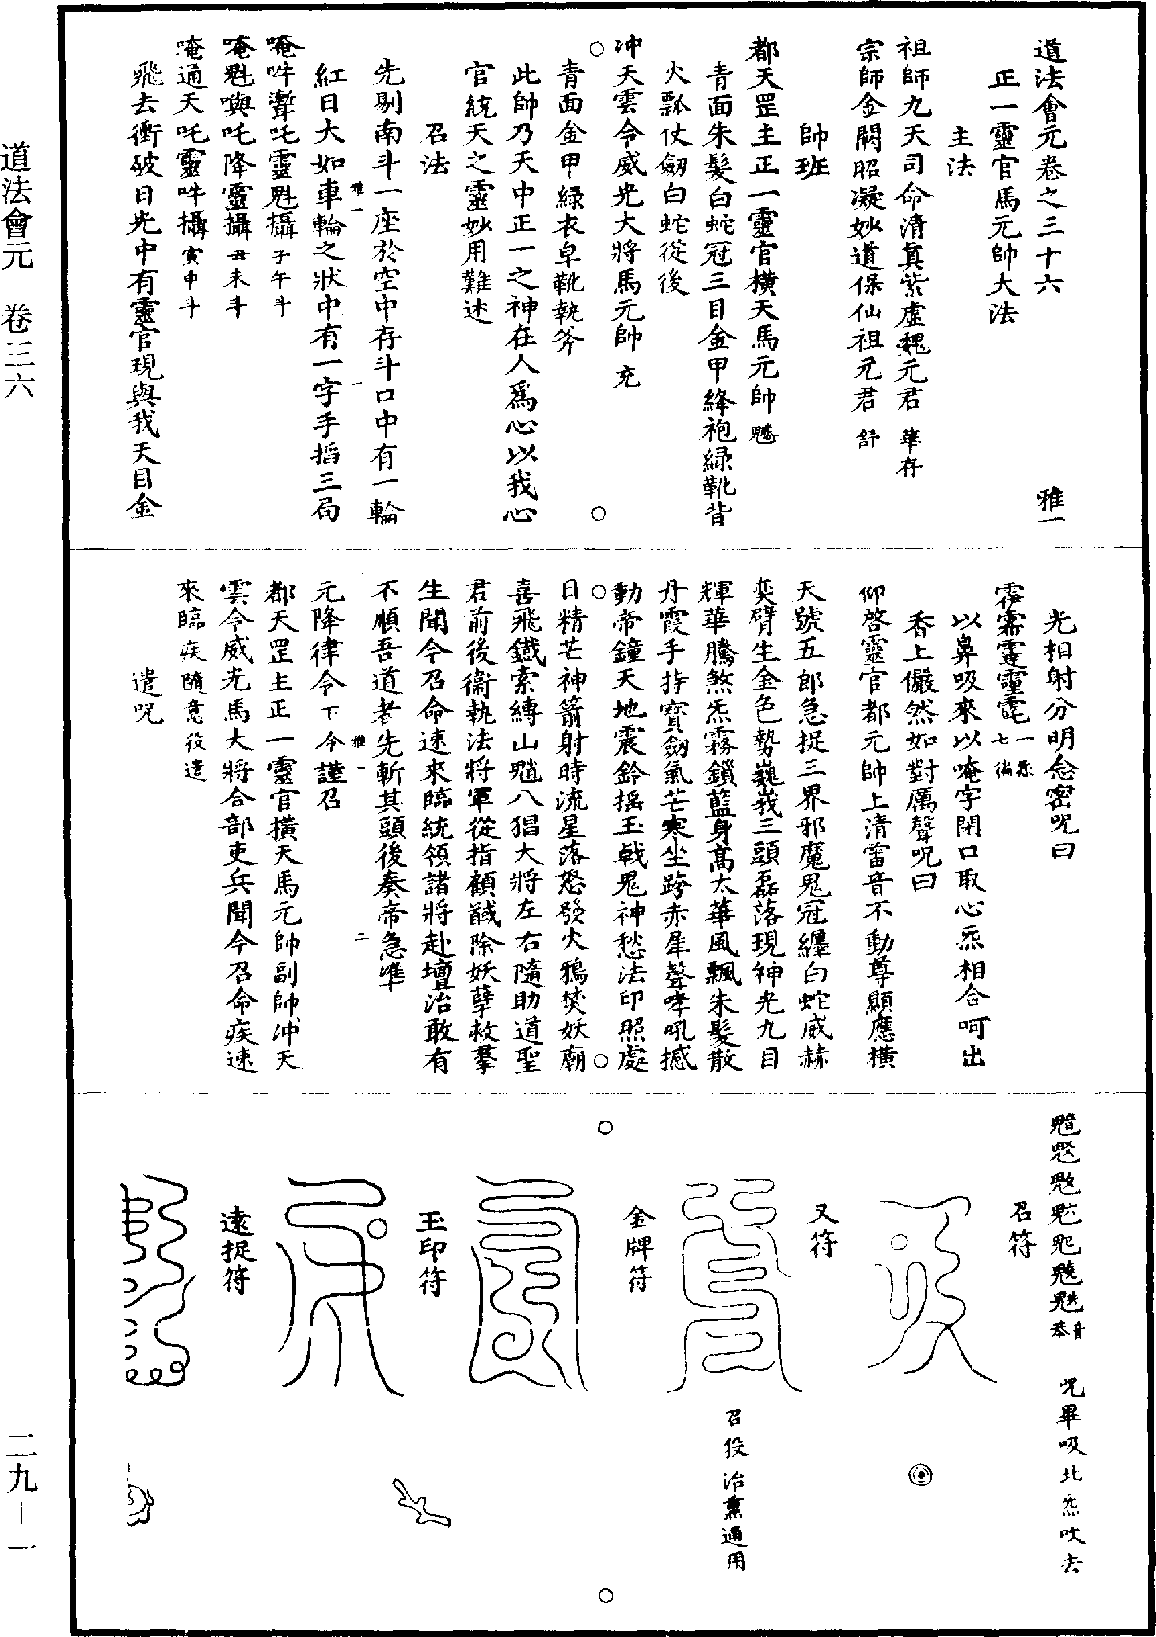 道法會元卷之三十六 雅一
正一靈官馬元帥大法
主法
祖師九天司命清真紫虛魏元君 華存
宗師金闕昭凝妙道保仙祖元君 舒
帥班
都天罡主正一靈官橫天馬元帥
青面朱髮白蛇冠三目金甲絳袍綠靴背
火瓢仗劒白蛇從後
冲天雲令威光大將馬元帥 充
青面金甲綠衣皁靴執斧
此帥乃天中正一之神在人爲心以我心
官統天之靈妙用難述
召法
先剔南斗一座於空中存斗口中有一輪
紅日大如車輪之狀中有一字手掐三局
唵吽吒靈魁攝 子午斗
唵魁吒降靈攝 丑未斗
唵通天吒靈吽攝 寅申斗
飛去衝破日光中有靈官現與我天目金
光相射分明念密咒曰
一炁七徧
以鼻吸來以唵字閉口取心炁相合呵出
香上儼然如對厲聲咒曰
仰啓靈官都元帥上清雷音不動尊顯應橫
天號五郎急捉三界邪魔鬼冠纏白蛇威赫
奕臂生金色勢巍峩三頭磊落現神光九目
輝華騰煞炁霧鎖藍身高太華風飄朱髮散
丹霞手持寶劒氣芒寒坐跨赤犀聲哮吼撼
動帝鐘天地震鈴搖玉戟鬼神愁法印照處
日精芒神箭射時流星落怒發火鴉焚妖廟
喜飛鐵索縛山魈八猖大將左右隨助道聖
君前後衞執法將軍從指顧馘除妖孽救羣
生聞今召命速來臨統領諸將赴壇治敢有
不順吾道者先斬其頭後奏帝急準
元降律令下令謹召
都天罡主正一靈官橫天馬元帥副帥冲天
雲令威光馬大將合部吏兵聞今召命疾速
來臨疾隨意役遣
遣咒
咒畢吸北炁吹去
召符
又符
召役治熏通用
金牌符
玉印符
遠捉符
道法會元 卷三六
二九—一